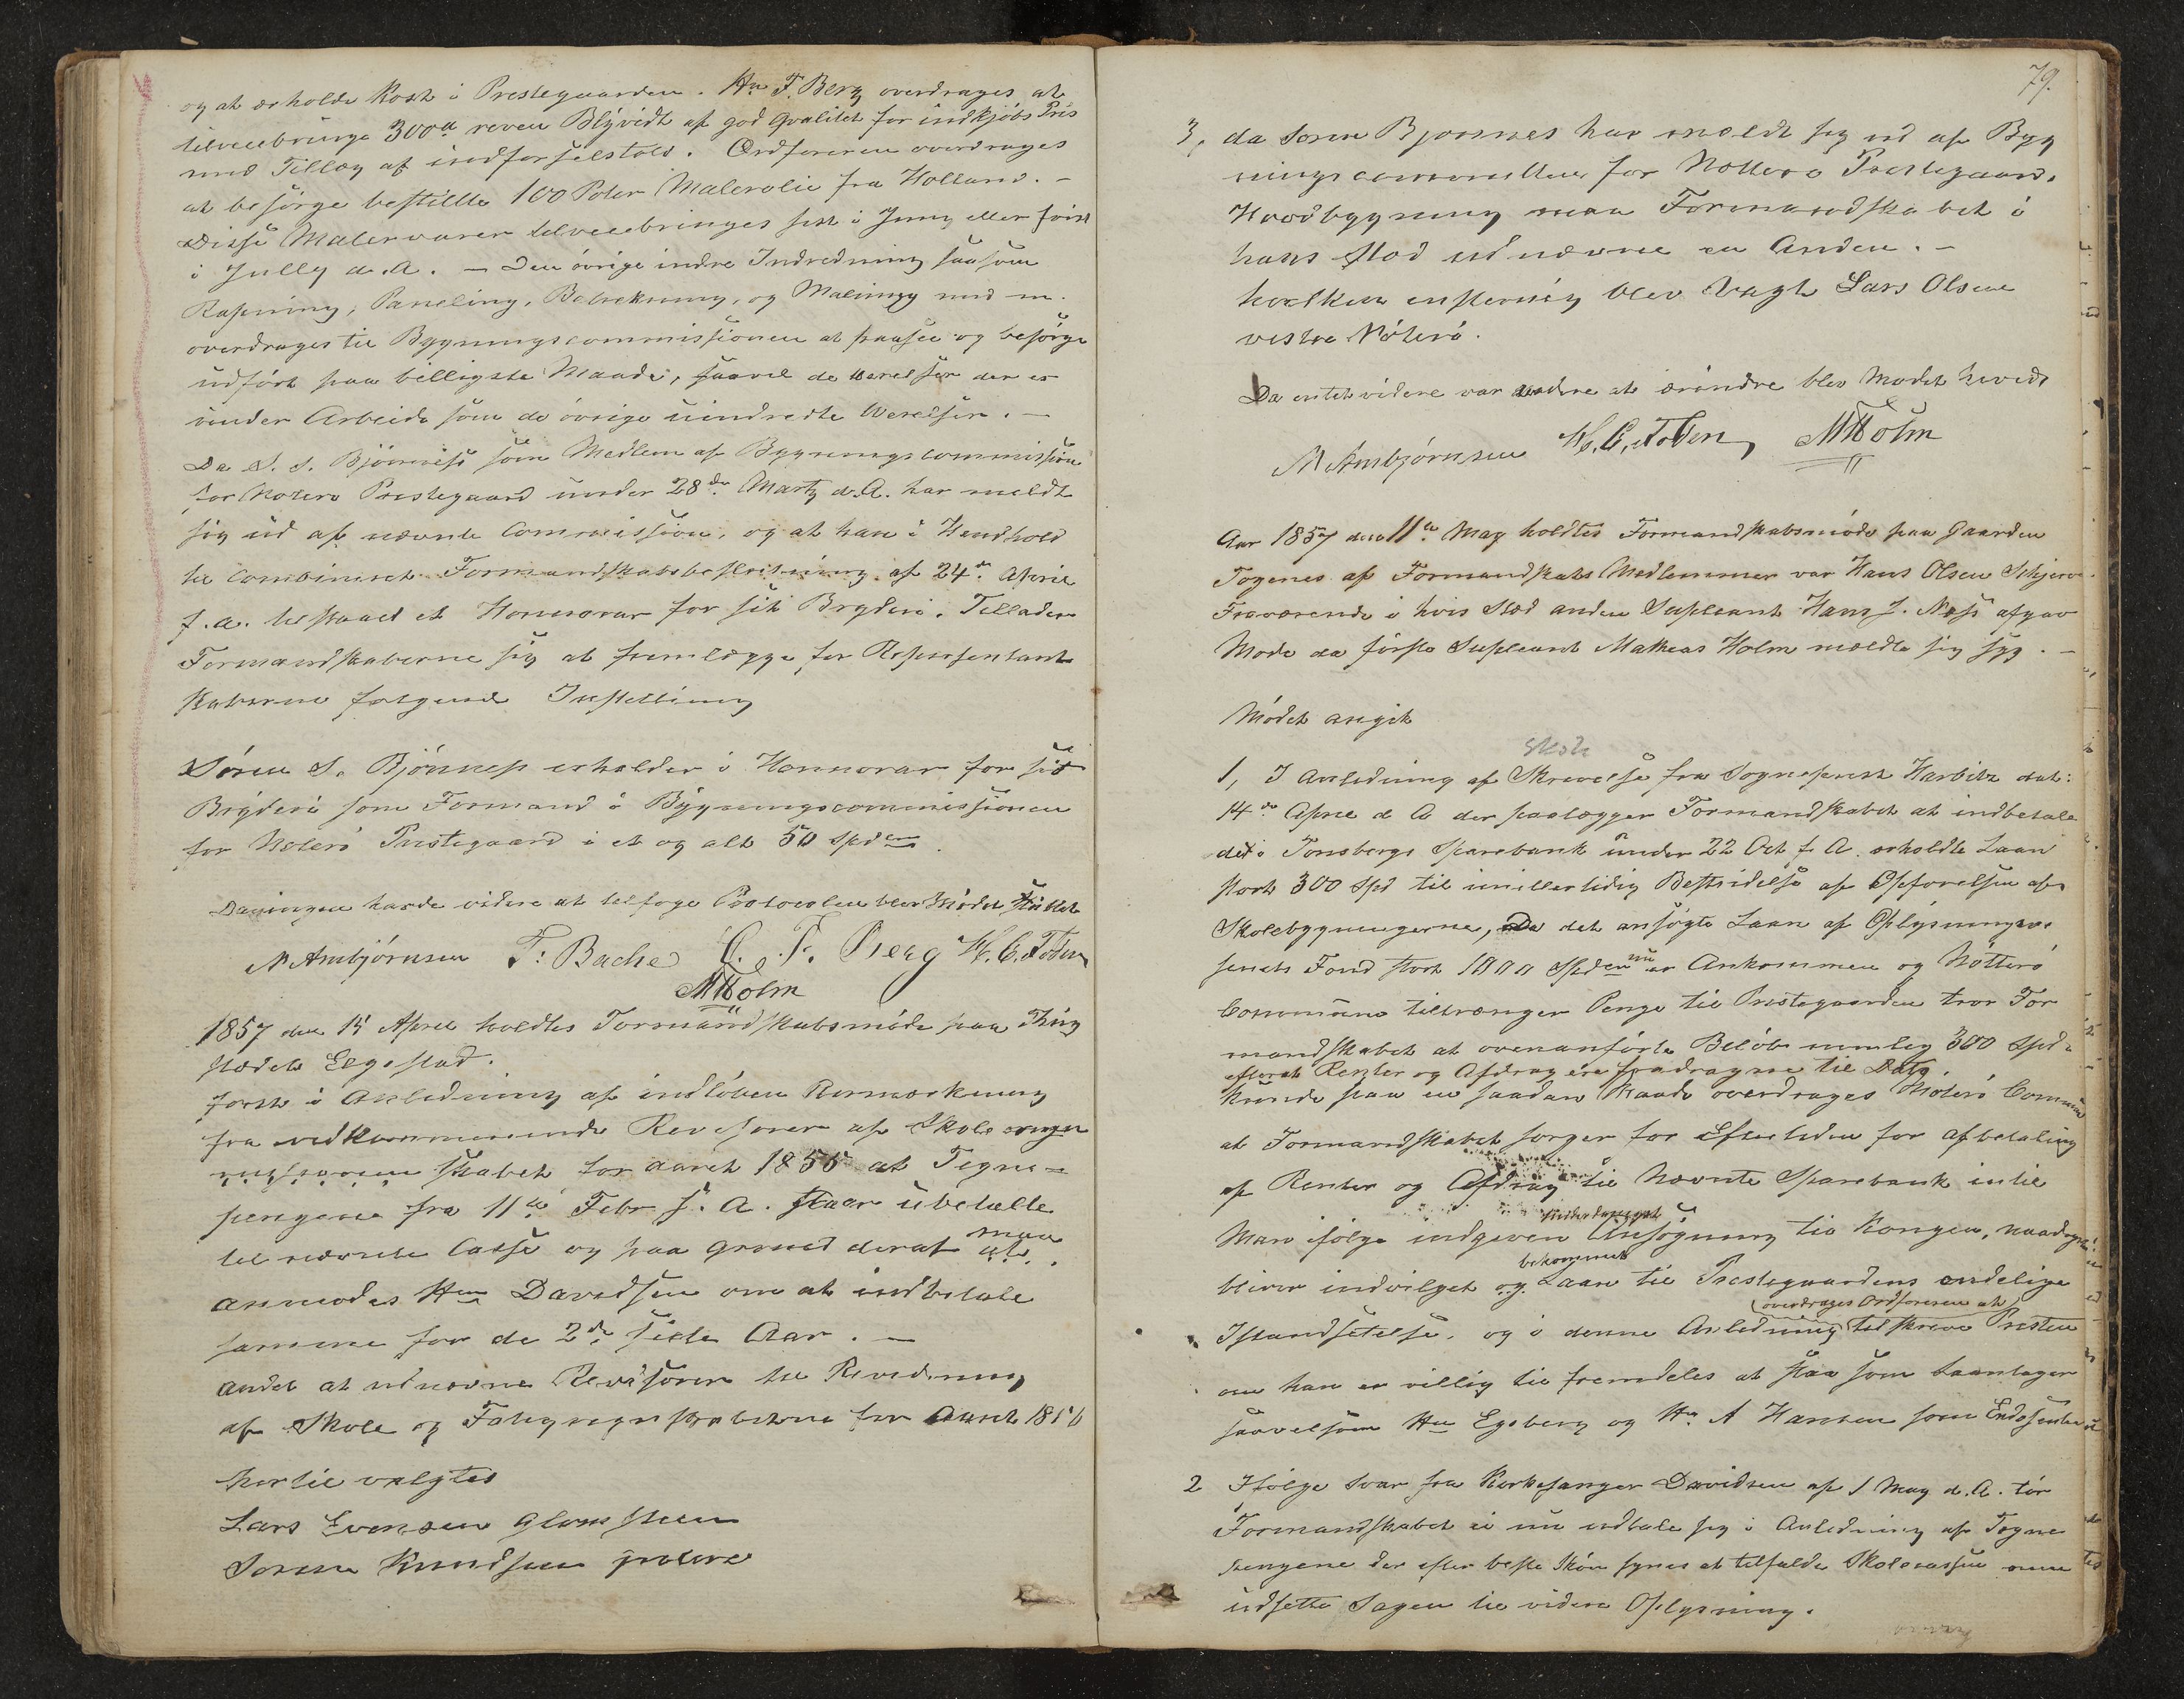 og at erholde Kost i Prestegaarden. Hr F. Berg overdrages at
tilveiebringe 300 a reven Blÿvidt af god qvalitet for indkjøbs Pris
med Tillæg af indførselstold. Ordføreren overdrages
at besørge bestillte 100 Poter Malerolie fra Holland. –
Disse Malervarer tilveiebringes sist i Juny eller først
i Jully d. A. – Den øvrige indre Indredning saasom
Rapning, Paneling, Betrekning, og Malning med m.
overdrages til Bygningscommissionen at paasee og besørge
udført paa billigste Maade, saavel de Værelser der er
under Arbeide som de øvrige uindredte Værelser. –
Da S. S. Bjønness som Medlem af Bygningscommission
for Notero Prestegaard under 28de Marty d. A. har meldt
sig ud af nævnte Commission, og at han i Hendhold
til Combineret Formandskabsbeslutning af 24de April
f. a. tilstaaed et Honnorar for sit Brÿderi. Tillader
Formandskaberne sig at fremlægge for Representant
skaberne følgende Instelling
Søren S. Bjønness erholder i Honnorar for sit
Brÿderi som Formand i Bÿgningscommissionen
for Noterö Prestegaard i et og alt 50 Spdr.
Da ingen havde videre at tilføge Protocolen blev Mødet sluttet
N Arnbjørnsen F. Bache C. F. Berg H. C. Foden
M Holm
1857 den 15 April holdtes Formandskabsmøde paa Thing
stedet Elgestad.
først i Anledning af indløben Bemærkning
fra vedkommende Revisorer af Skole
skabet for aaret 1855 at Tegne-
pengene fra 11te Febr f. A. staar ubetalte
til nævnte Casse og paa grund deraf maa
anmodes Hr Davidsen om at indbetale
samme for de 2de siste Aar. –
andet at udnævne Revisorer til Revidering
af Skole og Fatigregnskaberne for Aaret 1856
hertil valgtes
Lars Evensen Glomsteen
Soren Knudsen
79.
3, da Soren Bjonnes har meldt sig ud af Byg
ningscommitteen for Nottero Prestegaards
Hovedbygning maa Formandskabet i
hans sted udnævne en Anden. –
hvilken enstemig blev valgt Lars Olsen
vestre Nøterø.
Da intet videre var at erindre blev Mødet hævet
N Arnbjørnsen H. C. Foden M Holm
Aar 1857 den 11te May holdtes Formandskabsmøde paa Gaarden
Togenes af Formandskabs Medlemmer var Hans Olsen Schjerve
Fraværende i hvis Sted anden Supleant Hans J. Næss afgav
Møde da første Supleant Matheas Holm meldte sig syg. –
Mødet angik
Skole
1, I Anledning af Skrivelse fra Sogneprest Harbitz dat:
14de April d A der paalægger Formandskabet at indbetale
det i Tonsbergs Sparebank under 22 Oct f. A. erholdte Laan
stort 300 Spd til imillertidig Bestridelse af Opførelsen af
Skolebygningerne, Da det ansøgte Laan af Oplysningsve
senets Fond stort 1800 Spd nu er Ankommen og Nötterö
Commune tiltrænger Penge til Prestegaarden tror For
mandskabet at ovenanførte Beløb nemlig 300 Spd.
efterat Renter og Afdrag ere fradragne til Dato
kunde paa en saadan Maade overdrages Noterö Commune
at Formandskabet sørger for Eftertiden for afbetaling
af Renter og Afdrag til Nævnte Sparebank indtil
Man ifølge indgiven Ansøgning til Kongen, naadigst
bliver indvilget og bekommet Laan til Prestegaardens endelige
Istandsetelse, og i denne Anledning (overdrages Ordføreren at) tilskrive Presten
om han er villig til fremdeles at staa som Laantager
saavelsom Hr Egeberg og Hr A Hansen som Endosenter
2 Ifølge Svar fra Kirkesanger Davidsen af 1 May d. A. tør
Formandskabet ei nu udtale sig i Anledning af Tegne
pengene der efter beste Skøn synes at tilfalde Skolecassen men
udsette Sagen til videre Oplysning.